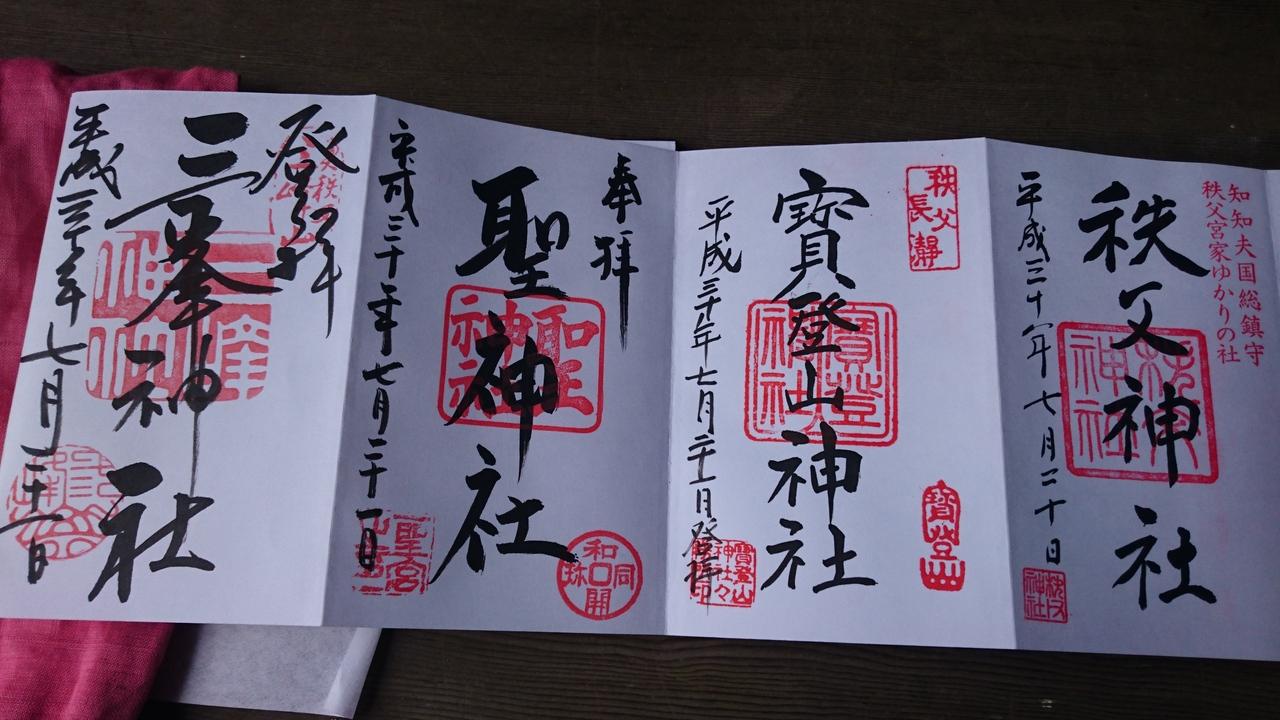 知知夫国総鎮守
秩父宮家ゆかりの社
秩父神社
平成三十年七月二十日
秩父神社
秩父
長瀞
寳登山神社
寳登山
平成三十年七月二十一日登拝
奉拝
聖神社
聖神社
和同開珎
平成三十年七月二十一日
聖宮
登拝
三峯神社
平成三十年七月二十一日